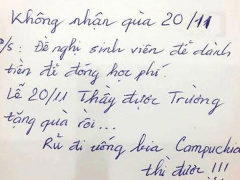 Không nhận quà 20/11
P/S: Đề nghị sinh viên để dành
tiền để đóng học phí.
Lễ 20/11 Thầy được Trường
tặng quà rồi...
Rủ đi uống bia Campuchia
thì được !!!